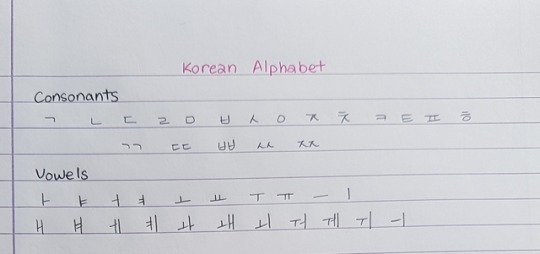 Korean Alphabet
Consonants
ㄱ ㄴ ㄷ ㄹ ㅁ ㅂ ㅅ ㅇ ㅈ ㅊ ㅋ ㅌ ㅍ ㅎ
ㄲ ㄸ ㅃ ㅆ ㅉ
Vowels
ㅏ ㅑ ㅓ ㅕ ㅗ ㅛ ㅜ ㅠ ㅡ ㅣ
ㅐ ㅒ ㅔ ㅖ ㅘ ㅙ ㅚ ㅝ ㅞ ㅟ ㅢ